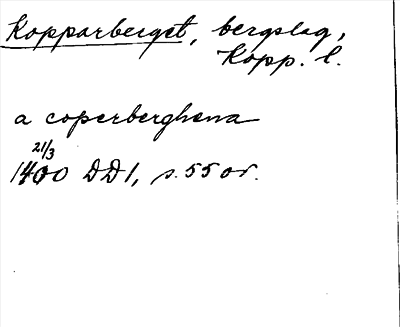 Kopparberget, bergslag,
Kopp. l.
a coperberghena
21/3
1400 DD1, s. 55 or.